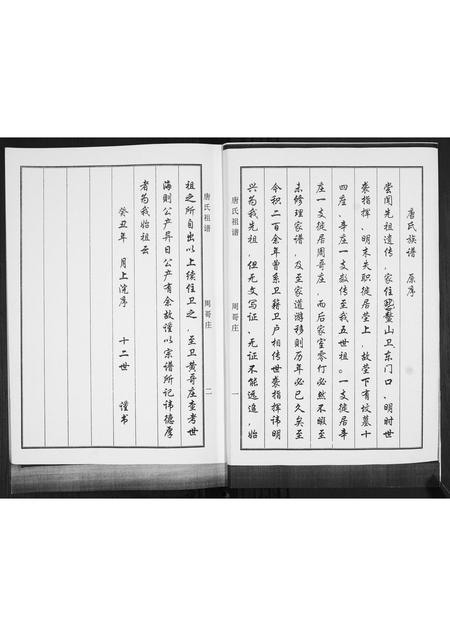 唐氏族谱 原序
尝闻先祖遗传，家住鳌山卫、东门口、明时世
袭指挥、明末失职徙居茔上，故茔下有坟墓十
四座、辛庄一支数传至我五世祖。一支徙居辛
庄一支徙居周哥庄，而后家室零仃必然不暇至
未修理家谱，及至家道游移则历年必已久矣至
今积二百余年曾系卫籍卫户相传世袭指挥讳明
兴为我先祖，但无文写证、无证不能远追，始
唐氏祖谱 周哥庄 一
唐氏祖谱 周哥庄 二
祖之所自出以上续住卫之，至卫黄哥庄查考世
海则公产异日公产有余故谨以宗谱所记讳德厚
者为我始祖云
癸丑年 月上浣序 十二世 谨书